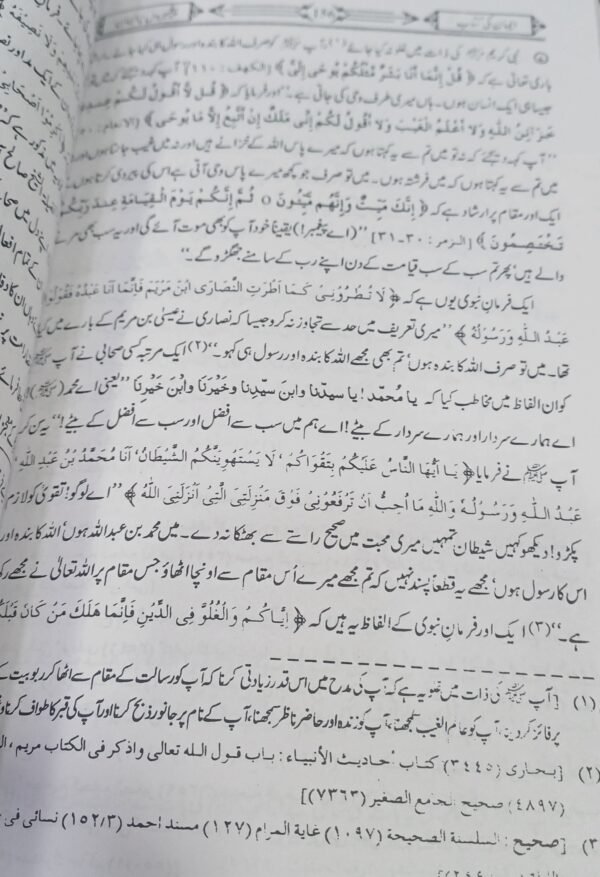 ایمان کی کتاب
① نبی کریم ﷺ کی ذات میں غلو نہ کیا جائے (۱) آپ ﷺ کو صرف اللہ کا بندہ اور رسول ہی کہا جائے
باری تعالیٰ ہے کہ ﴿ قُلْ إِنَّمَا أَنَا بَشَرٌ مِّثْلُكُمْ يُوحَى إِلَيَّ ﴾ [الكهف : ١١٠] "آپ کہہ دیجئے کہ
جیسا ہی ایک انسان ہوں۔ ہاں میری طرف وحی کی جاتی ہے۔" اور فرمایا کہ ﴿ قُل لَّا أَقُولُ لَكُمْ
خَزَائِنُ اللَّهِ وَلَا أَعْلَمُ الْغَيْبَ وَلَا أَقُولُ لَكُمْ إِنِّي مَلَكٌ إِنْ أَتَّبِعُ إِلَّا مَا يُوحَى ﴾ [الانعام :
"آپ کہہ دیجئے کہ نہ تو میں تم سے یہ کہتا ہوں کہ میرے پاس اللہ کے خزانے ہیں اور نہ میں غیب جانتا ہوں اور نہ
میں تم سے یہ کہتا ہوں کہ میں فرشتہ ہوں۔ میں تو صرف جو کچھ میرے پاس وحی آتی ہے اس کی پیروی کرتا ہوں۔"
ایک اور مقام پر ارشاد ہے کہ ﴿ إِنَّكَ مَيِّتٌ وَإِنَّهُم مَّيِّتُونَ ٥ ثُمَّ إِنَّكُمْ يَوْمَ الْقِيَامَةِ عِندَ رَبِّكُمْ
تَخْتَصِمُونَ ﴾ [الزمر : ٣٠-٣١] "(اے پیغمبر!) یقیناً خود آپ کو بھی موت آئے گی اور یہ سب بھی مرنے
والے ہیں' پھر تم سب کے سب قیامت کے دن اپنے رب کے سامنے جھگڑو گے۔"
ایک فرمانِ نبوی یوں ہے کہ ﴿ لَا تُطْرُوْنِيْ كَمَا أَطْرَتِ النَّصَارَى ابْنَ مَرْيَمَ فَإِنَّمَا أَنَا عَبْدُهُ فَقُولُوا
عَبْدُ اللَّهِ وَرَسُولُهُ ﴾ "میری تعریف میں حد سے تجاوز نہ کرو جیسا کہ نصاری نے عیسیٰ بن مریم کے بارے میں کیا
تھا۔ میں تو صرف اللہ کا بندہ ہوں' تم بھی مجھے اللہ کا بندہ اور رسول ہی کہو۔"(۲) ایک مرتبہ کسی صحابی نے آپ ﷺ
کو ان الفاظ میں مخاطب کیا کہ يا مُحمّد! يا سيدنا وابن سيّدِنا وخَيْرَنَا وابْن خَيْرِنَا "یعنی اے محمد (ﷺ)!
اے ہمارے سردار اور ہمارے سردار کے بیٹے! اے ہم میں سب سے افضل اور سب سے افضل کے بیٹے!" یہ سن کر
آپ ﷺ نے فرمایا ﴿ يَا أَيُّهَا النَّاسُ عَلَيْكُمْ بِتَقْوَاكُمْ ' لَا يَسْتَهْوِيَنَّكُمُ الشَّيْطَانُ' أَنَا مُحَمَّدُ بْنُ عَبْدِ اللَّهِ،
عَبْدُ اللهِ وَرَسُولُهُ وَاللَّهِ مَا أُحِبُّ أَنْ تَرْفَعُونِي فَوْقَ مَنْزِلَتِي الَّتِي أَنْزَلَنِيَ اللَّهُ ﴾ "اے لوگو! تقویٰ کو لازم
پکڑو! دیکھو کہیں شیطان تمہیں میری محبت میں صحیح راستے سے بھٹکا نہ دے۔ میں محمد بن عبد اللہ ہوں' اللہ کا بندہ اور
اس کا رسول ہوں' مجھے یہ قطعاً پسند نہیں کہ تم مجھے میرے اُس مقام سے اونچا اٹھاؤ جس مقام پر اللہ تعالیٰ نے مجھے رکھا
ہے۔"(۳) ایک اور فرمانِ نبوی کے الفاظ یہ ہیں کہ ﴿ إِيَّاكُمْ وَالْغُلُوَّ فِي الدِّيْنِ فَإِنَّمَا هَلَكَ مَنْ كَانَ قَبْلَكُمْ
(۱) [آپ ﷺ کی ذات میں غلو یہ ہے کہ آپ کی مدح میں اس قدر زیادتی کرنا کہ آپ کو رسالت کے مقام سے اٹھا کر ربوبیت کے
پر فائز کر دینا، آپ کو عالم الغیب سمجھنا، آپ کو زندہ اور حاضر ناظر سمجھنا، آپ کے نام پر جانور ذبح کرنا اور آپ کی قبر کا طواف کرنا و
(۲) [بخاری (٣٤٤٥) كتاب أحاديث الأنبياء : باب قول الله تعالى واذكر في الكتاب مريم ،
(٤٨٩٧) صحيح الجامع الصغير (٧٣٦٣)]
(۳) [صحيح : السلسلة الصحيحة (١٠٩٧) غاية المرام (١٢٧) مسند احمد (١٥٢/٣) نسائی فی